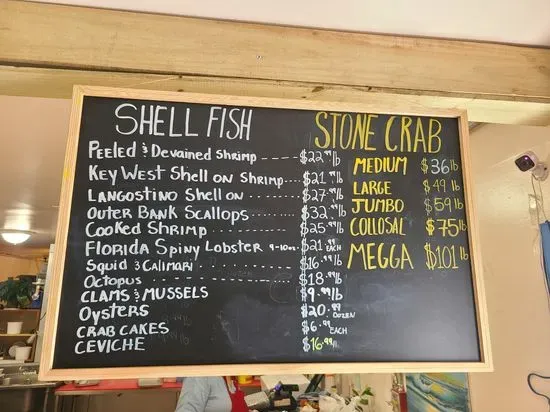 SHELL FISH
PEELED & DEVAINED SHRIMP ---- $22.99 lb
KEY WEST SHELL ON SHRIMP.... $21.99 lb
LANGOSTINO SHELL ON ........ $27.99 lb
OUTER BANK SCALLOPS ........ $32.99 lb
COOKED SHRIMP ........ $25.99 lb
FLORIDA SPINY LOBSTER 9-10oz. $21.99 EACH
SQUID & CALIMARI ........ $16.99 lb
OCTOPUS ........ $18.99 lb
CLAMS & MUSSELS $9.99 lb
OYSTERS $20.99 DOZEN
CRAB CAKES $6.99 EACH
CEVICHE $16.99 lb
STONE CRAB
MEDIUM $36 lb
LARGE $49 lb
JUMBO $59 lb
COLLOSAL $75 lb
MEGGA $101 lb